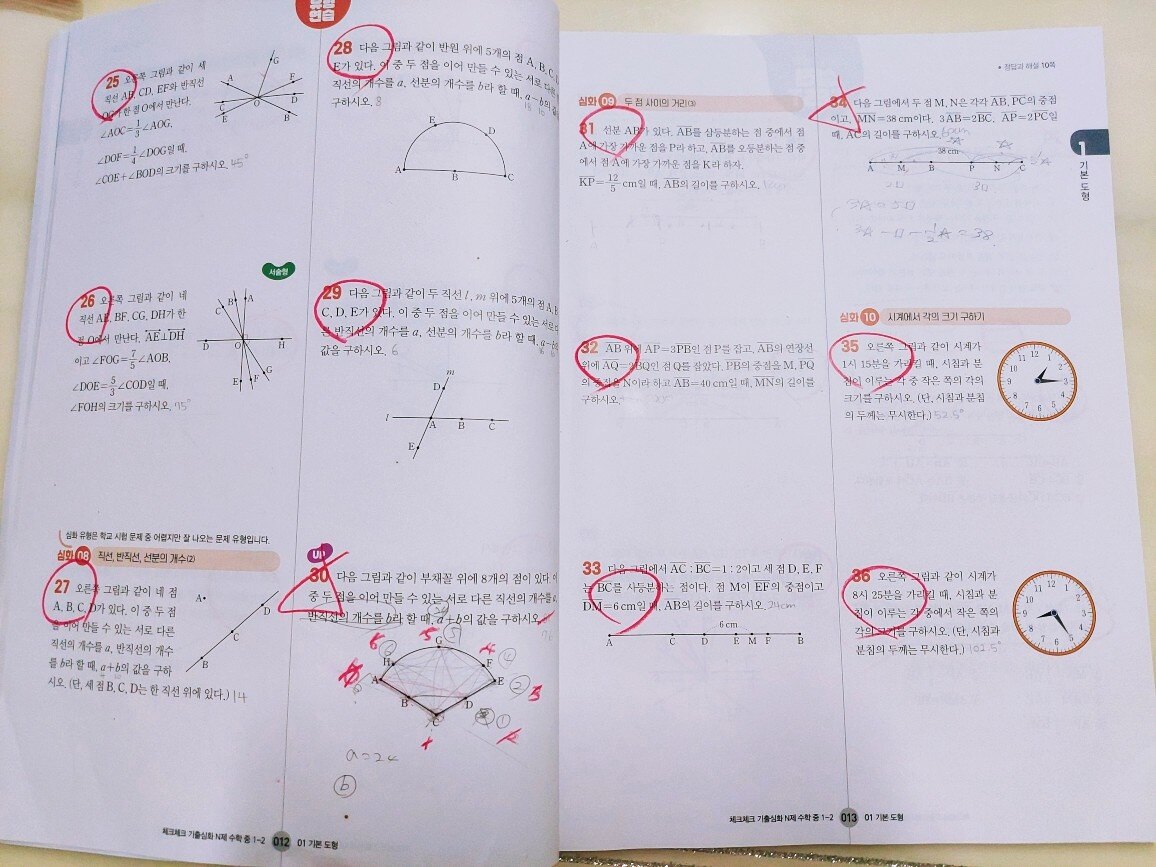 유형
연습
25 오른쪽 그림과 같이 세
직선 AB, CD, EF와 반직선
OG가 한 점 O에서 만난다.
∠AOC=1/3∠AOG,
∠DOF=1/4∠DOG일 때,
∠COE+∠BOD의 크기를 구하시오. 45°
G
A
F
C
O
D
E
B
서술형
26 오른쪽 그림과 같이 네
직선 AE, BF, CG, DH가 한
점 O에서 만난다. AE⊥DH
이고 ∠FOG=7/5∠AOB,
∠DOE=5/3∠COD일 때,
∠FOH의 크기를 구하시오. 75°
B A
C
O
D H
E F G
심화 유형은 학교 시험 문제 중 어렵지만 잘 나오는 문제 유형입니다.
심화 08 직선, 반직선, 선분의 개수(2)
27 오른쪽 그림과 같이 네 점
A, B, C, D가 있다. 이 중 두 점
을 이어 만들 수 있는 서로 다른
직선의 개수를 a, 반직선의 개수
를 b라 할 때, a+b의 값을 구하
시오. (단, 세 점 B, C, D는 한 직선 위에 있다.) 14
A
D
C
B
28 다음 그림과 같이 반원 위에 5개의 점 A, B, C,
E가 있다. 이 중 두 점을 이어 만들 수 있는 서로
직선의 개수를 a, 선분의 개수를 b라 할 때,
구하시오. 8
E
D
A
B
C
29 다음 그림과 같이 두 직선 l, m 위에 5개의 점 A, B,
C, D, E가 있다. 이 중 두 점을 이어 만들 수 있는 서로
른 반직선의 개수를 a, 선분의 개수를 b라 할 때, a-b
값을 구하시오. 6
m
D
l
A B C
E
UP
30 다음 그림과 같이 부채꼴 위에 8개의 점이 있다.
중 두 점을 이어 만들 수 있는 서로 다른 직선의 개수를 a,
반직선의 개수를 b라 할 때, a+b의 값을 구하시오.
G
H
F
A
E
B
D
C
a=24
b
체크체크 기출심화 N제 수학 중 1-2 012 01 기본 도형
• 정답과 해설 10쪽
심화 09 두 점 사이의 거리(3)
31 선분 AB가 있다. AB를 삼등분하는 점 중에서 점
A에 가장 가까운 점을 P라 하고, AB를 오등분하는 점 중
에서 점 A에 가장 가까운 점을 K라 하자.
KP=12/5 cm일 때, AB의 길이를 구하시오.
32 AB 위에 AP=3PB인 점 P를 잡고, AB의 연장선
점 Q를 잡았다. PB의 중점을 M, PQ
의 중점을 N이라 하고 AB=40 cm일 때, MN의 길이를
구하시오.
33 다음 그림에서 AC : BC=1 : 2이고 세 점 D, E, F
는 BC를 사등분하는 점이다. 점 M이 EF의 중점이고
DM=6 cm일 때, AB의 길이를 구하시오. 24cm
6 cm
A C D E M F B
34 다음 그림에서 두 점 M, N은 각각 AB, PC의 중점
이고, MN=38 cm이다. 3AB=2BC, AP=2PC일
때, AC의 길이를 구하시오.
38 cm
A M B P N C
심화 10 시계에서 각의 크기 구하기
35 오른쪽 그림과 같이 시계가
1시 15분을 가리킬 때, 시침과 분
침이 이루는 각 중 작은 쪽의 각의
크기를 구하시오. (단, 시침과 분침
의 두께는 무시한다.) 52.5°
36 오른쪽 그림과 같이 시계가
8시 25분을 가리킬 때, 시침과 분
침이 이루는 각 중에서 작은 쪽의
각의 크기를 구하시오. (단, 시침과
분침의 두께는 무시한다.) 102.5°
1
기본 도형
체크체크 기출심화 N제 수학 중 1-2 013 01 기본 도형